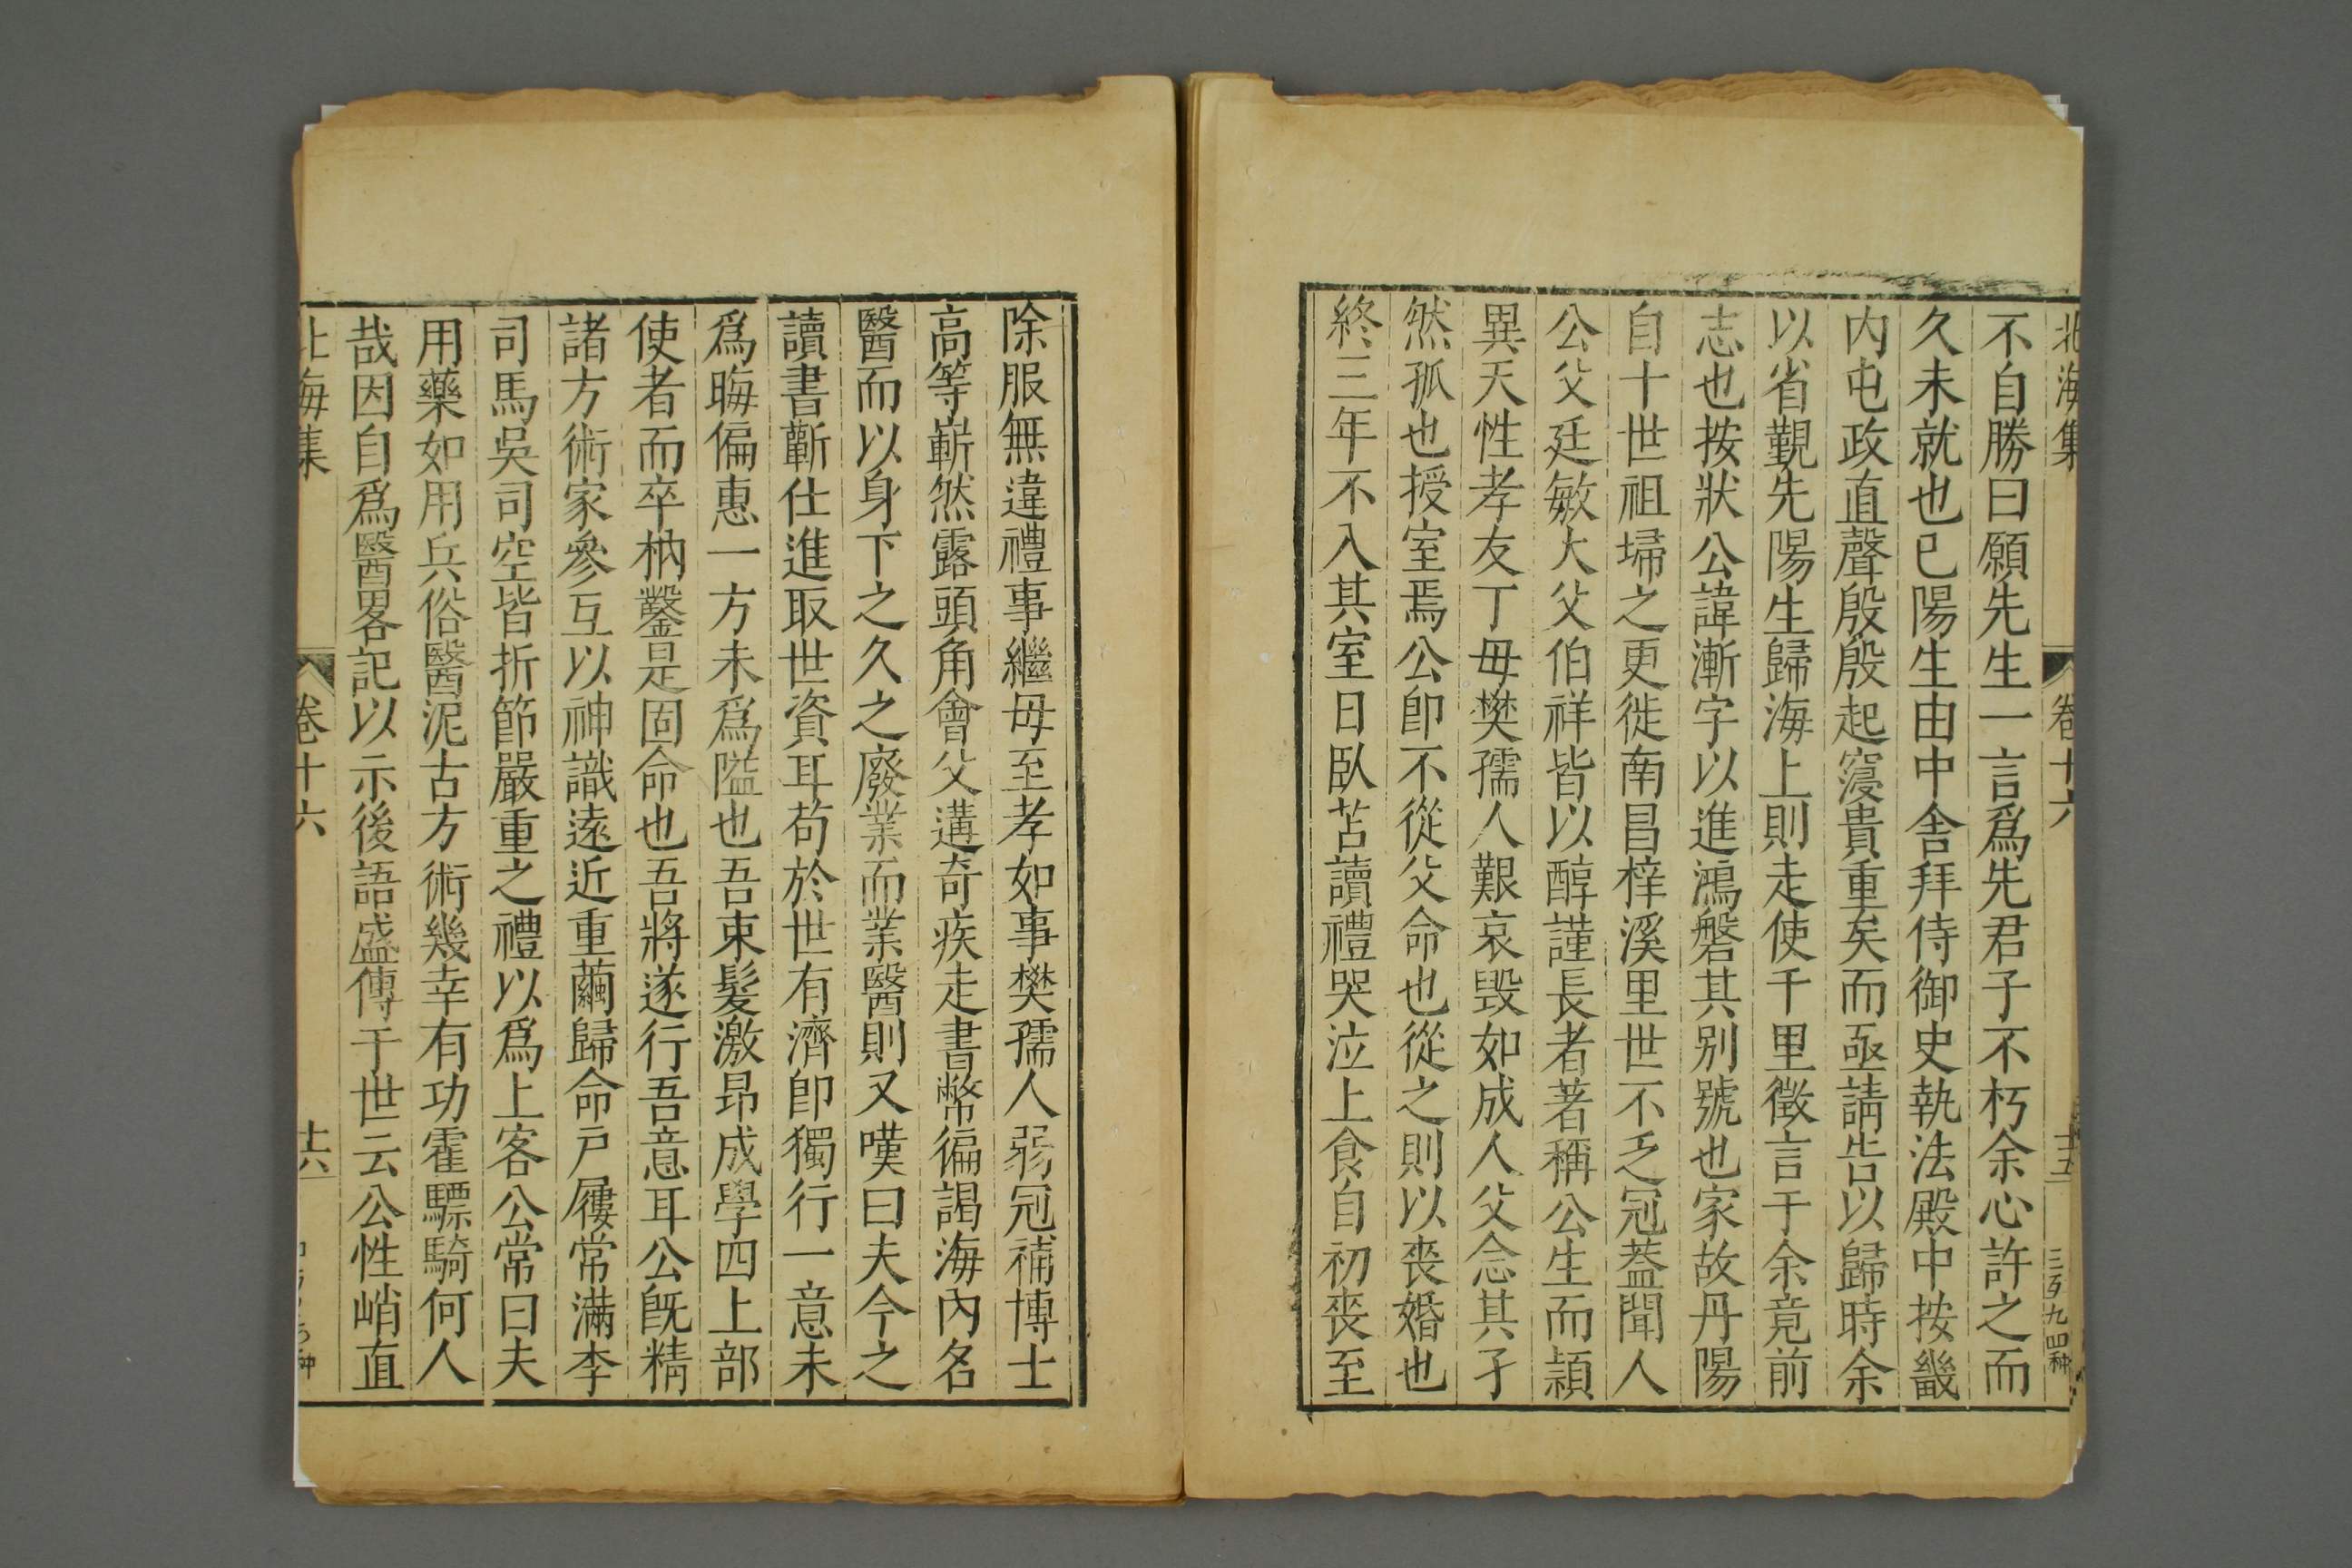 北海集 卷十六 十五 三列九四种
不自勝曰願先生一言爲先君子不朽余心許之而
久未就也已陽生由中舍拜侍御史執法殿中按畿
內屯政直聲殷殷起寖貴重矣而亟請告以歸時余
以省覲先陽生歸海上則走使千里徵言于余竟前
志也按狀公諱漸字以進鴻磐其別號也家故丹陽
自十世祖埽之更徙南昌梓溪里世不乏冠蓋聞人
公父廷敏大父伯祥皆以醇謹長者著稱公生而穎
異天性孝友丁母樊孺人艱哀毀如成人父念其孑
然孤也授室焉公卽不從父命也從之則以喪婚也
終三年不入其室日臥苫讀禮哭泣上食自初喪至
除服無違禮事繼母至孝如事樊孺人弱冠補博士
高等嶄然露頭角會父遘奇疾走書幣徧謁海內名
醫而以身下之久之廢業而業醫則又嘆曰夫今之
讀書蘄仕進取世資耳苟於世有濟卽獨行一意未
爲晦偏惠一方未爲隘也吾束髮激昂成學四上部
使者而卒枘鑿是固命也吾將遂行吾意耳公旣精
諸方術家參互以神識遠近重繭歸命戶屨常滿李
司馬吳司空皆折節嚴重之禮以爲上客公常曰夫
用藥如用兵俗醫泥古方術幾幸有功霍驃騎何人
哉因自爲醫畧記以示後語盛傳于世云公性峭直
北海集 卷十六 十六